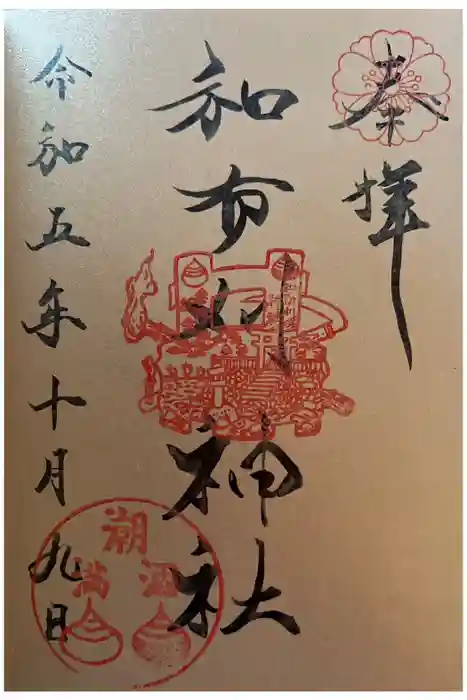 奉拝
和布刈神社
令和五年十月九日
満